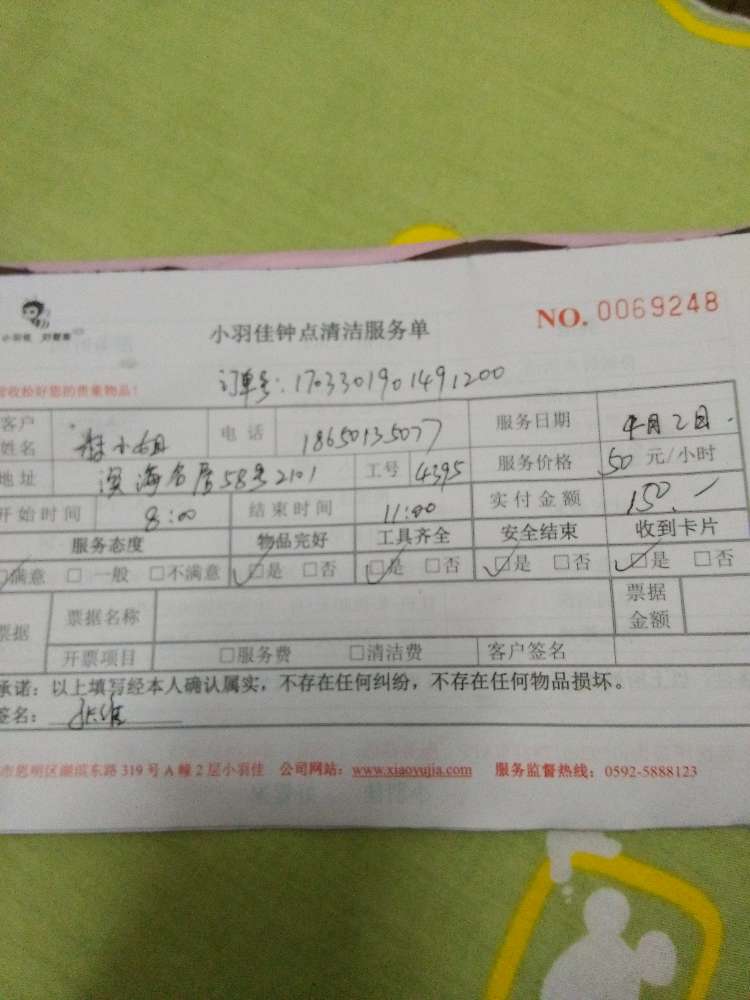 小羽佳
小羽佳钟点清洁服务单
NO. 0069248
收捡好您的贵重物品！
订单号：1703301901491200
客户姓名 小姐 电话 18650135077 服务日期 4月2日
地址 滨海名居58号2101 工号 4395 服务价格 50 元/小时
开始时间 8:00 结束时间 11:00 实付金额 150.-
服务态度 物品完好 工具齐全 安全结束 收到卡片
☑满意 □ 一般 □不满意 ☑是 □否 ☑是 □否 ☑是 □否 ☑是 □否
票据 票据名称 票据金额
开票项目 □服务费 □清洁费 客户签名
承诺：以上填写经本人确认属实，不存在任何纠纷，不存在任何物品损坏。
签名：
市思明区湖滨东路 319 号 A 幢 2 层小羽佳 公司网站：www.xiaoyujia.com 服务监督热线：0592-5888123